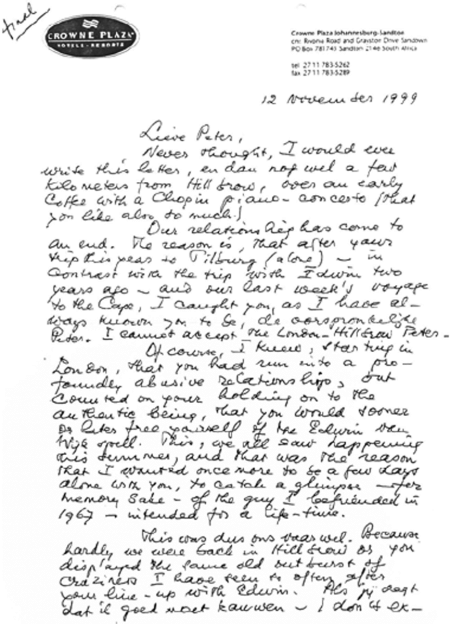 final
CROWNE PLAZA
HOTELS · RESORTS
Crowne Plaza Johannesburg-Sandton
cnr. Rivonia Road and Grayston Drive Sandown
PO Box 781743 Sandton 2146 South Africa
tel 27 11 783-5262
fax 27 11 783-5289
12 November 1999
Lieve Peter,
Never thought, I would ever
write this letter, en dan nog wel a few
kilometers from Hillbrow, over an early
Coffee with a Chopin piano-concerto (that
you like also so much!)
Our relationship has come to
an end. The reason is, that after your
trip this year to Tilburg (alone) – in
contrast with the trip with Edwin two
years ago – and our last week's voyage
to the Cape, I caught you, as I have al-
ways known you to be, de oorspronkelijke
Peter. I cannot accept the London-Hillbrow Peter.
Of course, I knew, starting in
London, that you had run into a pro-
foundly abusive relationship, but
counted on your holding on to the
authentic being, that you would sooner
or later free yourself of the Edwin van
Wijk spell. This, we all saw happening
this summer, and that was the reason
that I wanted once more to be a few days
alone with you, to catch a glimpse – for
memory sake – of the guy I befriended in
1967 – intended for a life-time.
This was dus ons vaarwel. Because
hardly we were back in Hillbrow or you
displayed the same old outburst of
craziness I have seen so often after
your line-up with Edwin. Als jij zegt
dat ik goed moet kauwen – I don't ex-